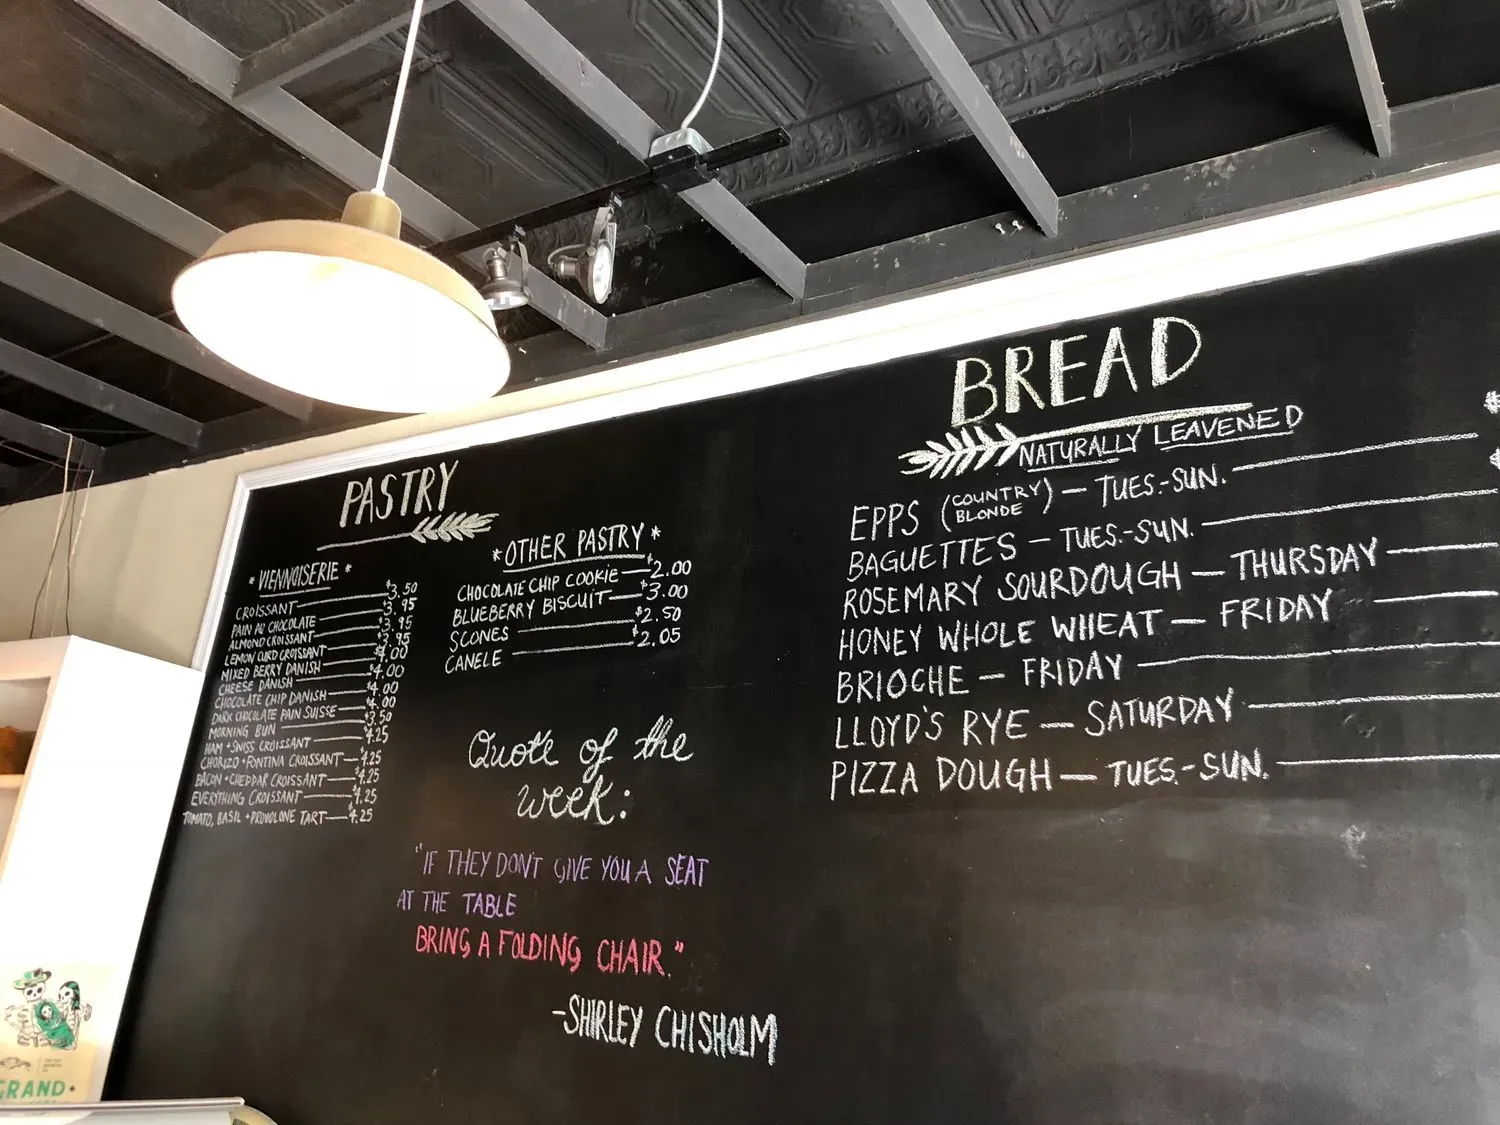 PASTRY
*VIENNOISERIE*
CROISSANT — $3.50
PAIN AU CHOCOLATE — $3.95
ALMOND CROISSANT — $3.95
LEMON CURD CROISSANT — $3.95
MIXED BERRY DANISH — $4.00
CHEESE DANISH — $4.00
CHOCOLATE CHIP DANISH — $4.00
DARK CHOCOLATE PAIN SUISSE — $4.00
MORNING BUN — $3.50
HAM + SWISS CROISSANT — $4.25
CHORIZO + FONTINA CROISSANT — $4.25
BACON + CHEDDAR CROISSANT — $4.25
EVERYTHING CROISSANT — $4.25
TOMATO, BASIL + PROVOLONE TART — $4.25
*OTHER PASTRY*
CHOCOLATE CHIP COOKIE — $2.00
BLUEBERRY BISCUIT — $3.00
SCONES — $2.50
CANELE — $2.05
Quote of the
week:
"IF THEY DON'T GIVE YOU A SEAT
AT THE TABLE
BRING A FOLDING CHAIR."
-SHIRLEY CHISHOLM
BREAD
NATURALLY LEAVENED
EPPS (COUNTRY BLONDE) — TUES.-SUN.
BAGUETTES — TUES.-SUN.
ROSEMARY SOURDOUGH — THURSDAY
HONEY WHOLE WHEAT — FRIDAY
BRIOCHE — FRIDAY
LLOYD'S RYE — SATURDAY
PIZZA DOUGH — TUES.-SUN.
GRAND